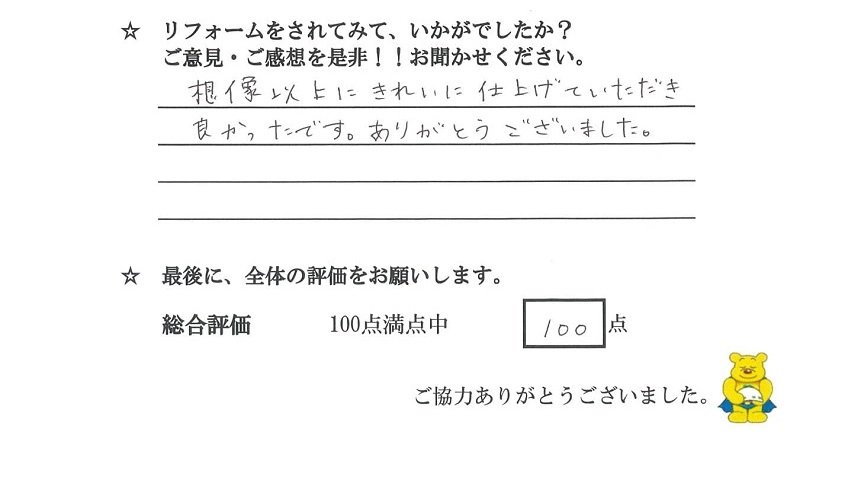 ☆ リフォームをされてみて、いかがでしたか？
ご意見・ご感想を是非！！お聞かせください。
想像以上にきれいに仕上げていただき
良かったです。ありがとうございました。
☆ 最後に、全体の評価をお願いします。
総合評価 100点満点中 100 点
ご協力ありがとうございました。